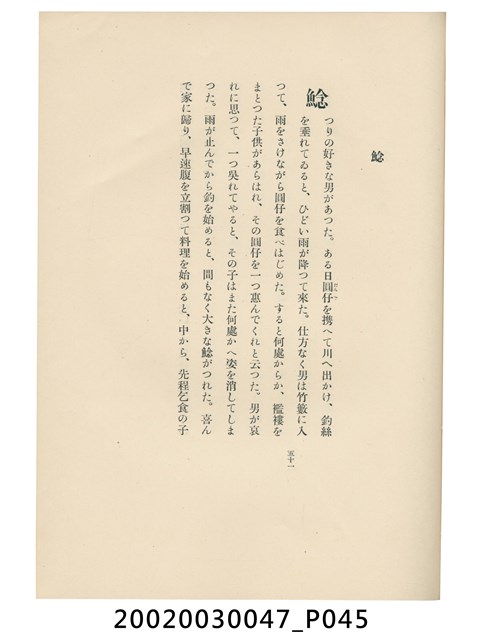 鯰
鯰
つりの好きな男があつた。ある日圓仔を携へて川へ出かけ、釣絲
を垂れてゐると、ひどい雨が降つて來た。仕方なく男は竹籔に入
つて、雨をさけながら圓仔を食べはじめた。すると何處からか、襤褸を
まとつた子供があらはれ、その圓仔を一つ惠んでくれと云つた。男が哀
れに思つて、一つ吳れてやると、その子はまた何處かへ姿を消してしま
つた。雨が止んでから釣を始めると、間もなく大きな鯰がつれた。喜ん
で家に歸り、早速腹を立割つて料理を始めると、中から、先程乞食の子
五十一
20020030047_P045